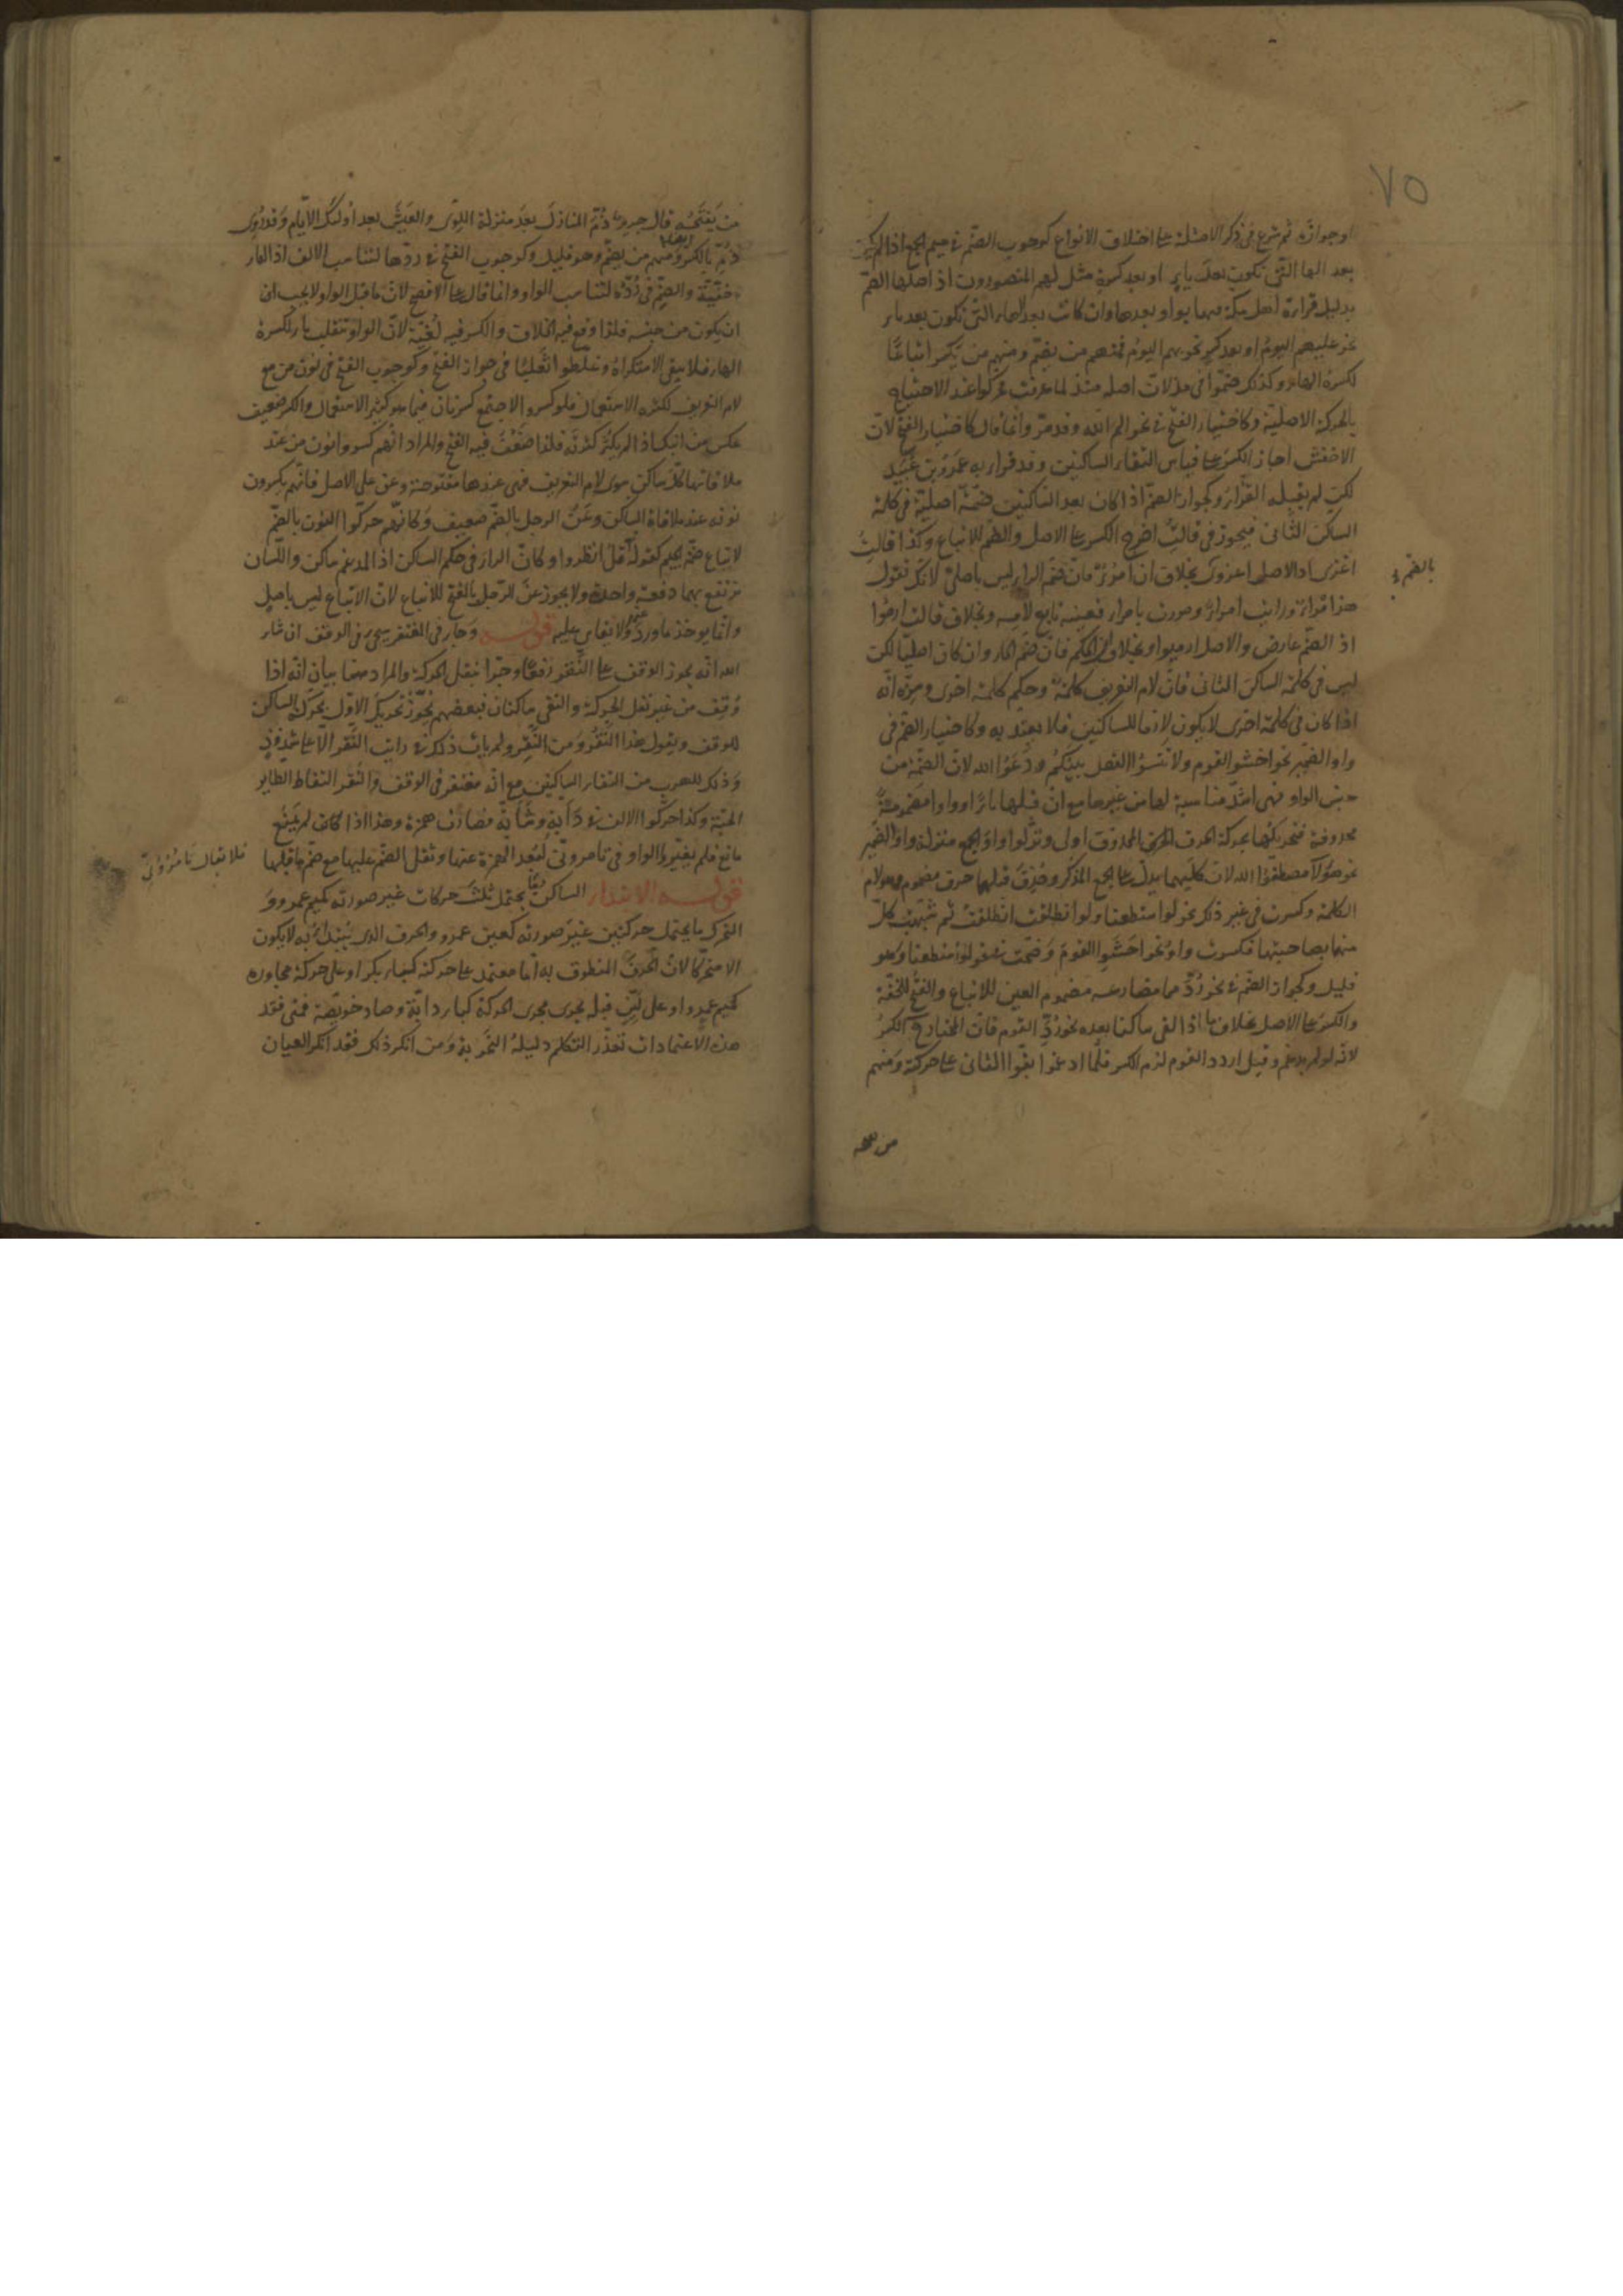 ٧٥
او جوازه ثم شرع في ذكر الامثلة على اختلاف الانواع كوجوب الضم في ميم الجمع اذا لم يكن
بعد الها التي تكون بعد ياء او بعد كسرة مثل لهم المنصورون اذ اصلها الضم
بدليل قراءة اهل مكة بواو بعدها وان كانت بعد الهاء التي تكون بعد ياء
نحو عليهم اليوم او بعد كسر نحو بهم اليوم فمنهم من يضم ومنهم من يكسر اتباعا
لكسرة الهاء وكذلك ضموا في مذ لان اصله منذ لما عرفت حركوا عند الاحتياج
بالحركة الاصلية وكاختيار الفتح في نحو الم الله وقد مر وانما قال كاختيار الفتح لان
الاخفش اجاز الكسر على قياس التقاء الساكنين وقد قرأ به عمرو بن عبيد
لكن لم يقبله القراء وكجواز الضم اذا كان بعد الساكنين ضمة اصلية في كلمة
الساكن الثاني فيجوز في قالت اخرج الكسر على الاصل والضم للاتباع وكذا قالت
اغزى اذ الاصل اغزوى بخلاف ان امرؤ فان ضم الراء ليس باصلي لانك تقول
بالضم
هذا امرؤ ورايت امرأ ومررت بامرئ فعينه تابع لامه وبخلاف قالت ارموا
اذ الضم عارض والاصل ارميوا وبخلاف ان الحكم فان ضم الحاء وان كان اصليا لكن
ليس في كلمة الساكن الثاني فان لام التعريف كلمة وحكم كلمة اخرى
اذا كان في كلمة اخرى لا يكون لازما للساكنين فلا يعتد به وكاختيار الضم في
واو الضمير نحو اخشوا القوم ولا تنسوا الفضل بينكم ودعوا الله لان الضمة من
جنس الواو فهي اشد مناسبة لها من غيرها مع ان قبلها ياء او واوا مضمومة
محذوفة فتحريكها بحركة الحرف المحذوف اولى ونزلوا واو الجمع منزلة واو الضمير
نحو هؤلاء مصطفوا الله لان كليهما يدل على الجمع المذكر وحذف قبلهما حرف مضموم هو لام
الكلمة وكسرت في غير ذلك نحو لو استطعنا ولو انطلقت انطلقت ثم شبهت كل
منهما بصاحبتها فكسرت واو نحو اخشوا القوم وضمت نحو لو استطعنا وهو
قليل وكجواز الضم في نحو رد مما مضارعه مضموم العين للاتباع والفتح للخفة
والكسر على الاصل بخلاف ما اذا لقى ساكنا بعده نحو رد القوم فان المختار فيه الكسر
لانه لو لم يدغم وقيل اردد القوم لزم الكسر فلما ادغموا بقوا الثاني على حركته ومنهم
من
من يفتحه قال جرير ذم المنازل بعد منزلة اللوى والعيش بعد اولئك الايام وقد روى
ذم بالكسر ومنهم من يضم وهو قليل وكوجوب الفتح في ردها لتناسب الالف اذ الهاء
خفية والضم في رده لتناسب الواو وانما قال على الافصح لان ما قبل الواو لا يجب ان
ان يكون من جنسه فلذا وقع فيه الخلاف والكسر فيه لغية لان الواو تنقلب ياء لكسرة
الهاء فلا يبقى الاستكراه وغلطوا ثعلبا في جواز الفتح وكوجوب الفتح في نون من مع
لام التعريف لكثرة الاستعمال فلو كسر والاجتمع كسرتان فيما هو كثير الاستعمال والكسر ضعيف
عكس من ابنك اذ لم يكثر كثرته فلذا ضعف فيه الفتح والمراد انهم كسروا نون من عند
ملاقاتها كل ساكن سوى لام التعريف فهي عندها مفتوحة وعن على الاصل فانهم يكسرون
نونه عند ملاقاة الساكن وعن الرجل بالضم ضعيف وكانهم حركوا النون بالضم
لاتباع ضمة الجيم كقوله قل انظروا وكان الراء في حكم الساكن اذ المدغم ساكن واللسان
ترتفع بهما دفعة واحدة ولا يجوز عن الرجل بالفتح للاتباع لان الاتباع ليس باصل
وانما يوخذ ما ورد ولا يقاس عليه قوله وجاء في المغتفر سيجيء في الوقف ان شاء
الله انه يجوز الوقف على النقر رفعا وجرا بنقل الحركة والمراد هنا بيان انه اذا
وقف من غير نقل الحركة والتقى ساكنان فبعضهم يجوز تحريك الاول بحركة الساكن
للوقف ويقول هذا النقر ومن النقر ولم يات ذلك في رايت النقر الا على شذوذ
وذلك للهرب من التقاء الساكنين مع انه مغتفر في الوقف والنقر التقاط الطاير
الحبة وكذا حركوا الالف في دابة وشابة فصارت همزة وهذا اذا كان لم يمنع
مانع فلم يغيروا الواو في تامروني لبعد الهمزة عنها وثقل الضم عليها مع ضم ما قبلها
فلا تقال تامرؤني
قوله الابتداء الساكن ما يحتمل ثلث حركات غير صورته كميم عمرو و
المتحرك ما يحتمل حركتين غير صورته كعين عمرو والحرف الذى يبتدأ به لا يكون
الا متحركا لان الحرف المنطوق به اما معتمد على حركته كباء بكر او على حركة مجاوره
كميم عمرو او على لين قبله يجرى مجرى الحركة كباء دابة وصاد خويصة فمتى فقد
هذه الاعتمادات تعذر التكلم دليله التجربة ومن انكر ذلك فقد انكر العيان